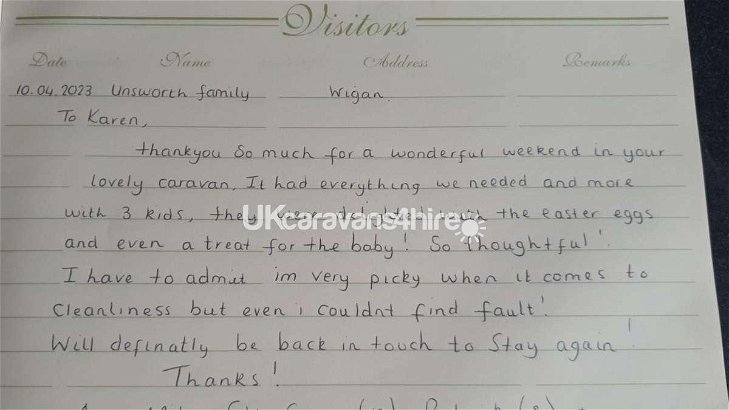 Visitors
Date Name Address Remarks
10.04.2023 Unsworth family Wigan.
To Karen,
thankyou so much for a wonderful weekend in your
lovely caravan. It had everything we needed and more
with 3 kids, they were delighted with the easter eggs
UKcaravans4hire
and even a treat for the baby! So thoughtful!
I have to admit im very picky when it comes to
cleanliness but even i couldnt find fault!
Will definatly be back in touch to stay again!
Thanks!